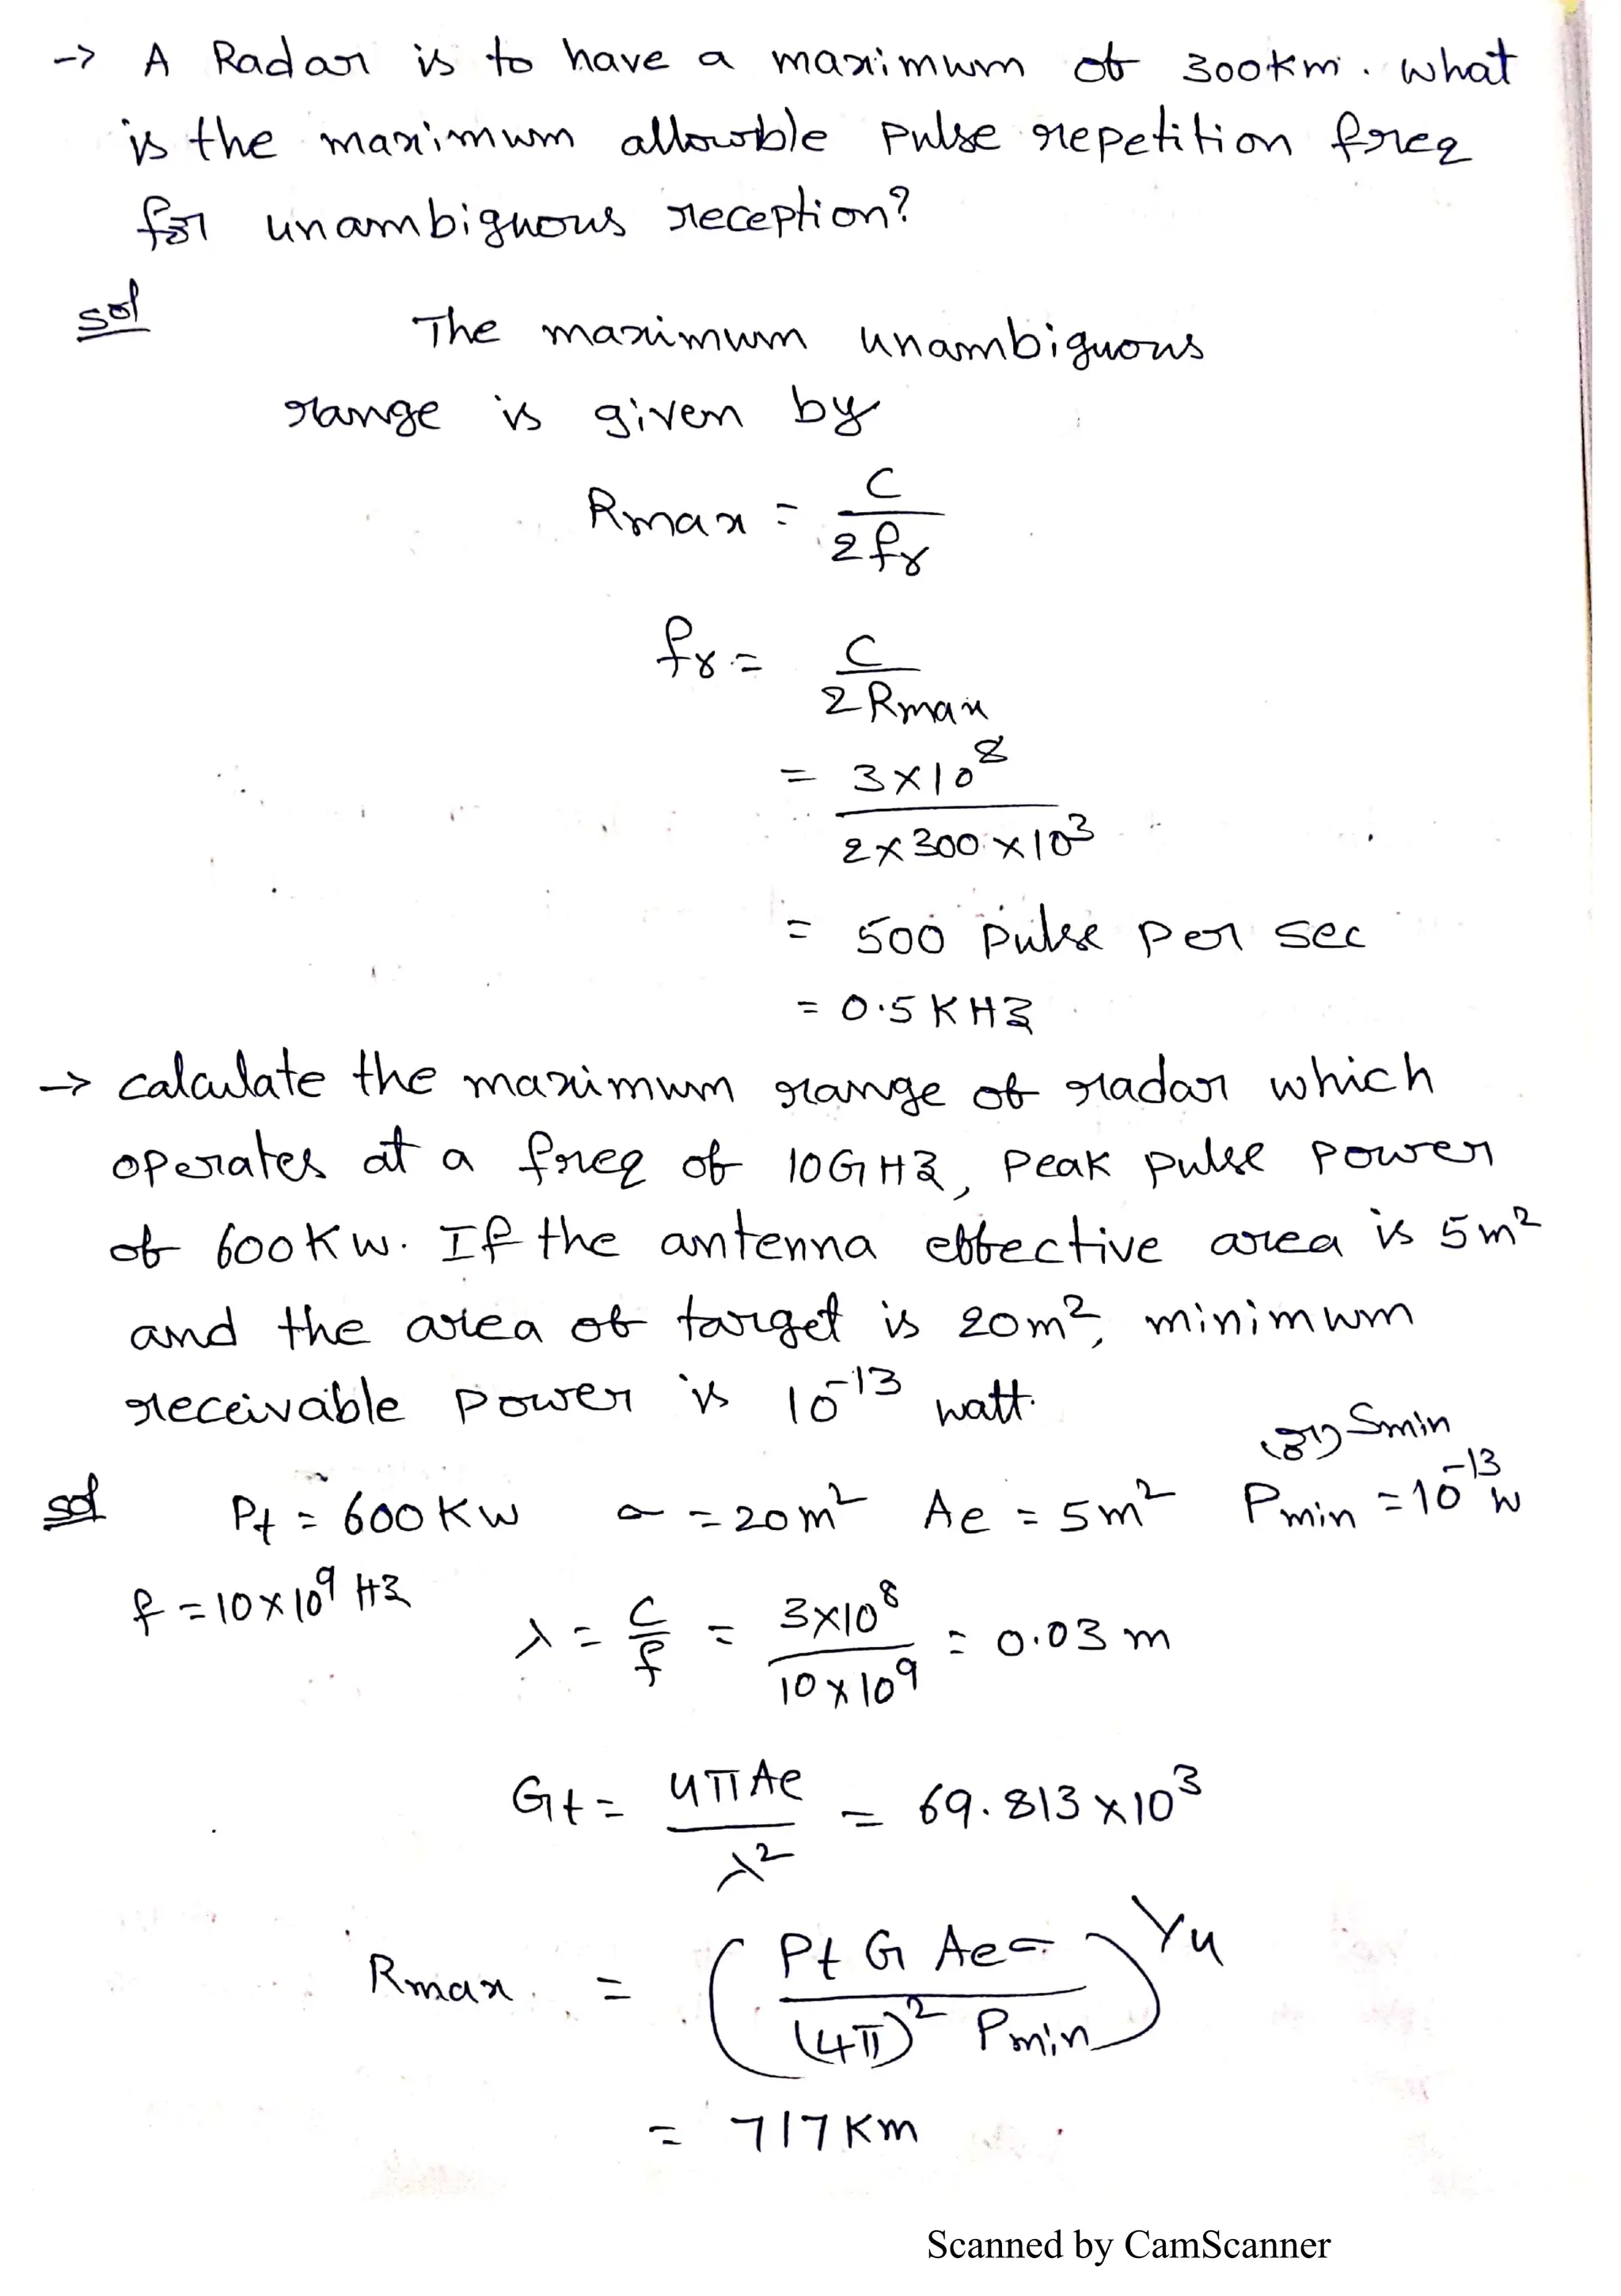 → A Radar is to have a maximum of 300km. What
is the maximum allowble pulse repetition freq
for unambiguous reception?
sol
The maximum unambiguous
range is given by
Rmax = C / 2fr
fr = C / 2Rmax
= 3×10⁸ / 2×300×10³
= 500 pulse per sec
= 0.5 KHz
→ calculate the maximum range of radar which
operates at a freq of 10GHz, Peak pulse power
of 600Kw. If the antenna effective area is 5m²
and the area of target is 20m², minimum
receivable power is 10⁻¹³ watt.
(or) Smin
sol Pt = 600Kw σ = 20m² Ae = 5m² Pmin = 10⁻¹³ w
f = 10×10⁹ Hz
λ = C/f = 3×10⁸ / 10×10⁹ = 0.03 m
Gt = 4πAe / λ² = 69.813×10³
Rmax = (Pt G Ae σ / (4π)² Pmin)^1/4
= 717Km
Scanned by CamScanner